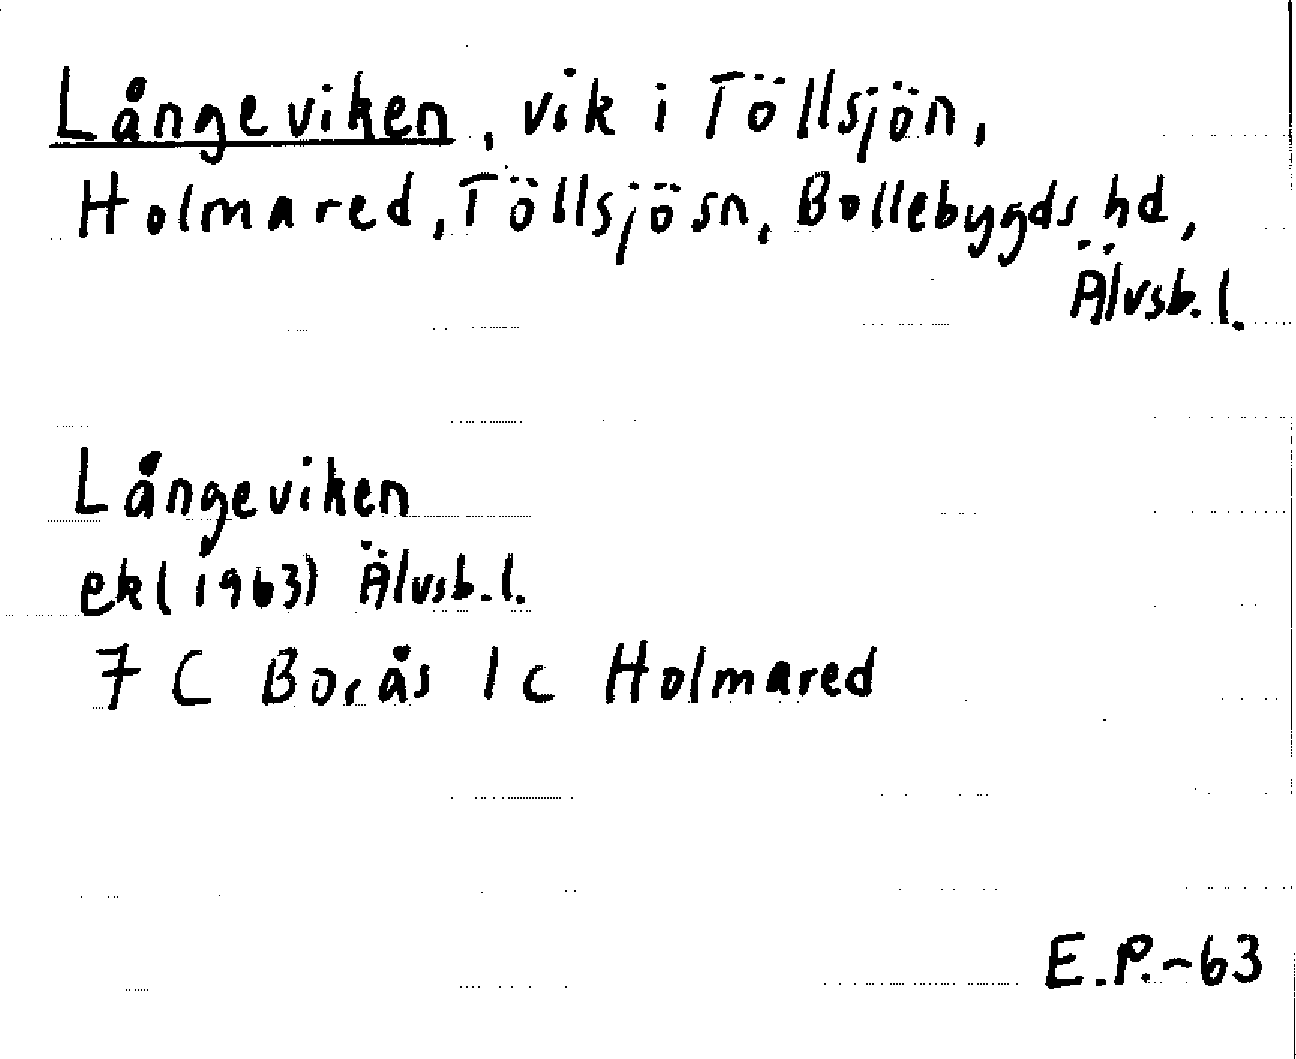 Långeviken, vik i Töllsjön,
Holmared, Töllsjösn, Bollebygds hd,
Älvsb. l.
Långeviken
ekl (1963) Älvsb. l.
7 C Borås 1 c Holmared
E.P.-63